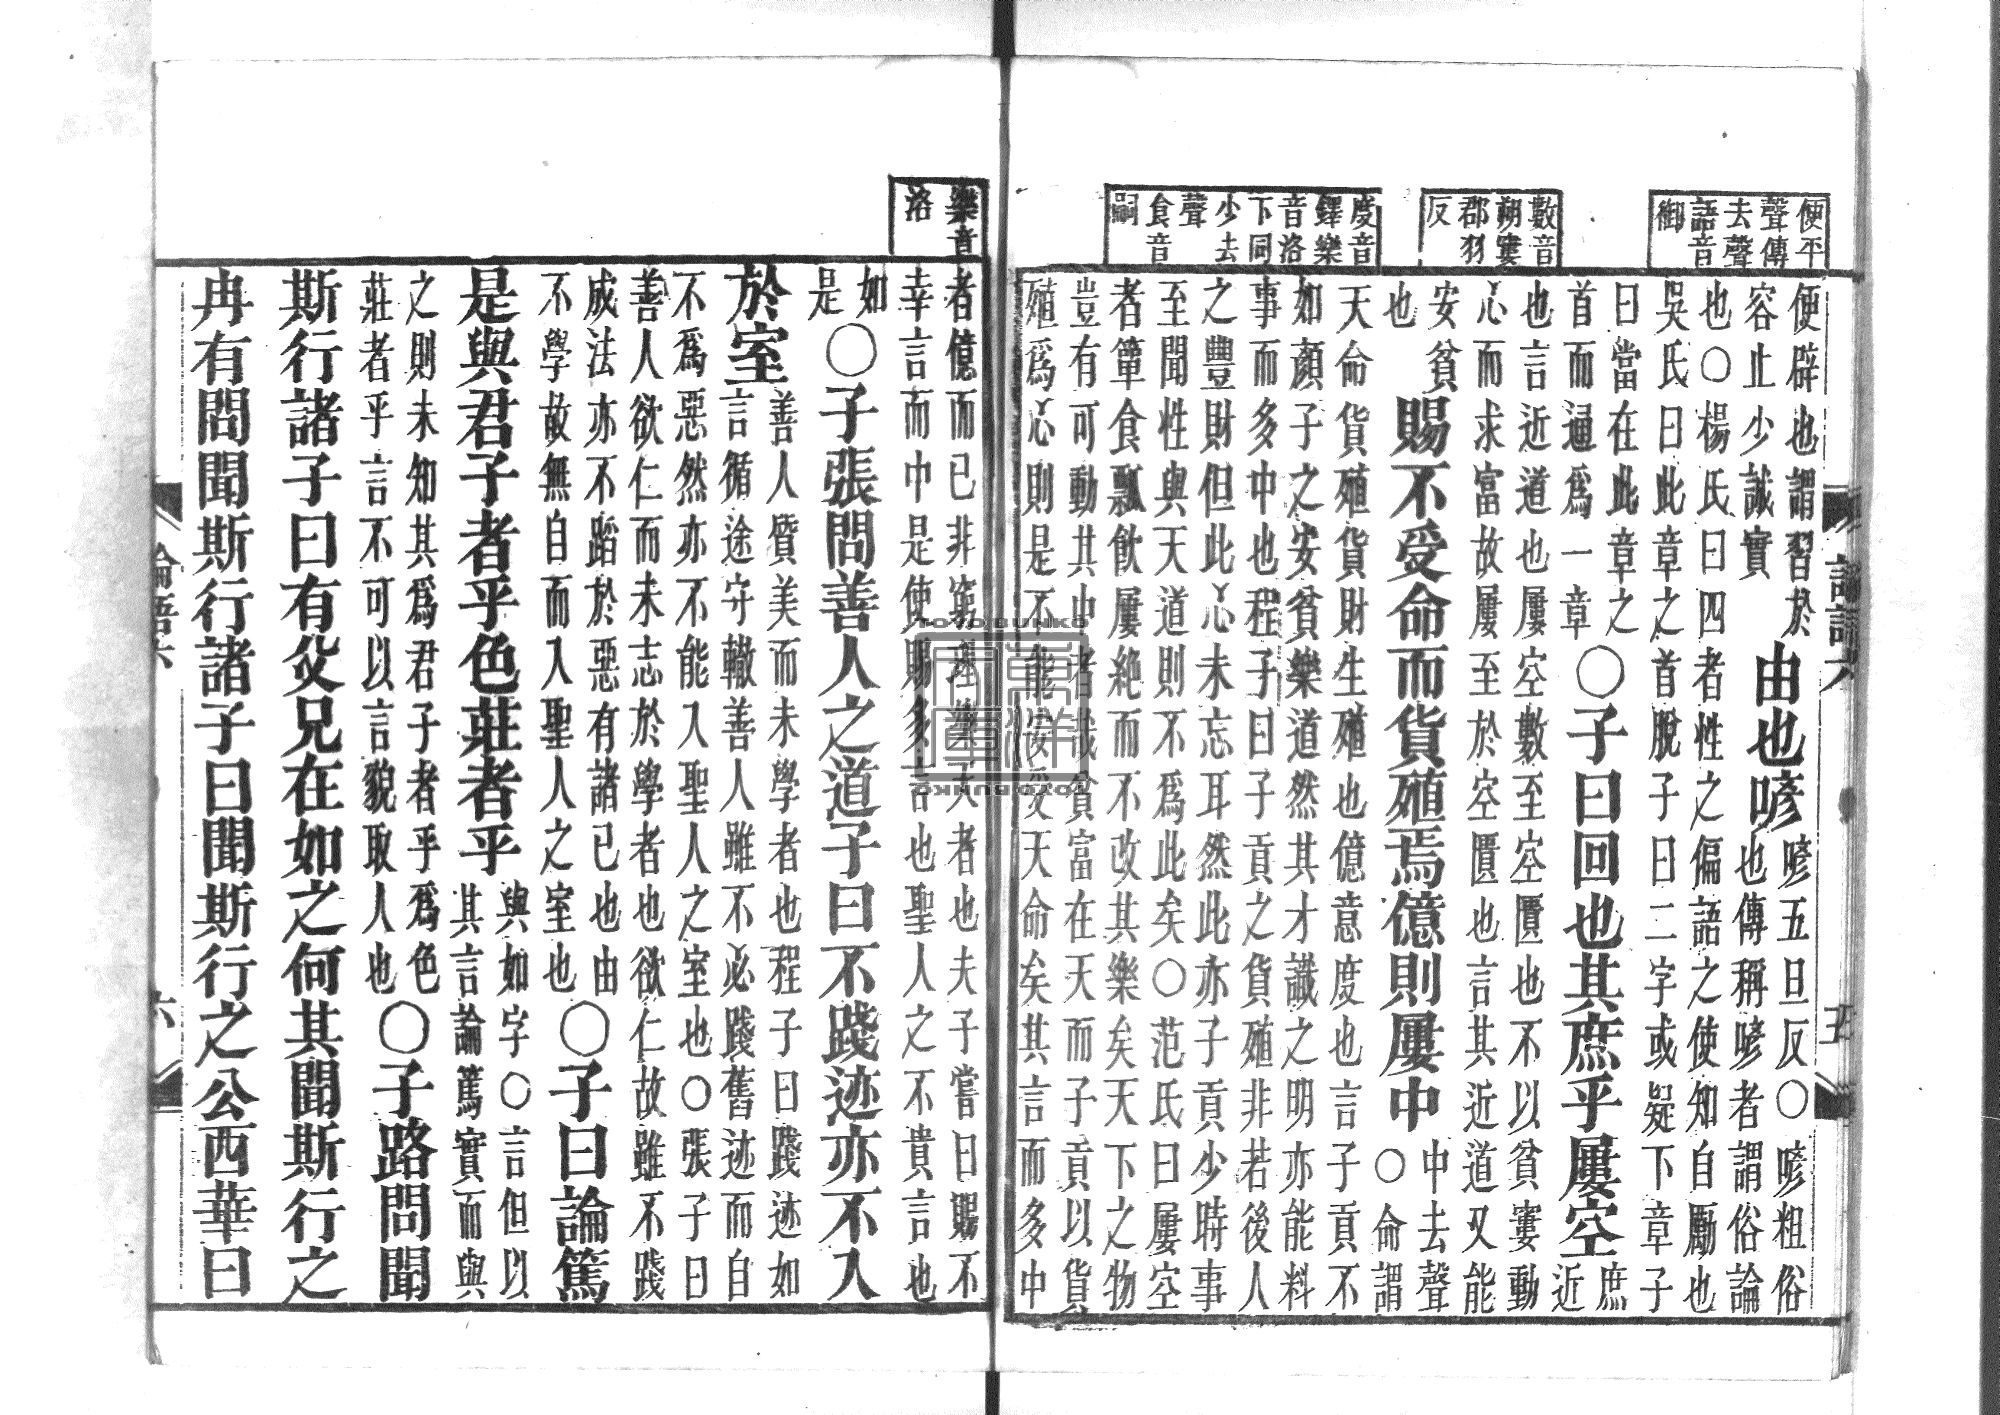 便平
聲傳
去聲
語音
御
數音
朔窶
郡羽
反
度音
鐸樂
音洛
下同
少去
聲
食音
嗣
便辟也謂習於
容止少誠實
由也喭
喭五旦反○喭粗俗
也傳稱喭者謂俗論
也○楊氏曰四者性之偏語之使知自勵也
吳氏曰此章之首脫子曰二字或疑下章子
曰當在此章之
首而通爲一章
○子曰回也其庶乎屢空
庶
近
也言近道也屢空數至空匱也不以貧窶動
心而求富故屢至於空匱也言其近道又能
安貧
也
賜不受命而貨殖焉億則屢中
中去聲
○命謂
天命貨殖貨財生殖也億意度也言子貢不
如顏子之安貧樂道然其才識之明亦能料
事而多中也程子曰子貢之貨殖非若後人
之豐財但此心未忘耳然此亦子貢少時事
至聞性與天道則不爲此矣○范氏曰屢空
者簞食瓢飲屢絶而不改其樂矣天下之物
豈有可動其中者哉貧富在天而子貢以貨
殖爲心則是不能安受天命矣其言而多中
論語六
五
樂音
洛
者億而已非窮理樂天者也夫子嘗曰賜不
幸言而中是使賜多言也聖人之不貴言也
如
是
○子張問善人之道子曰不踐迹亦不入
於室
善人質美而未學者也程子曰踐迹如
言循途守轍善人雖不必踐舊迹而自
不爲惡然亦不能入聖人之室也○張子曰
善人欲仁而未志於學者也欲仁故雖不踐
成法亦不蹈於惡有諸己也由
不學故無自而入聖人之室也
○子曰論篤
是與君子者乎色莊者乎
與如字○言但以
其言論篤實而與
之則未知其爲君子者乎爲色
莊者乎言不可以言貌取人也
○子路問聞
斯行諸子曰有父兄在如之何其聞斯行之
冉有問聞斯行諸子曰聞斯行之公西華曰
論語六
六
TOYOBUNKO
TOYOBUNKO